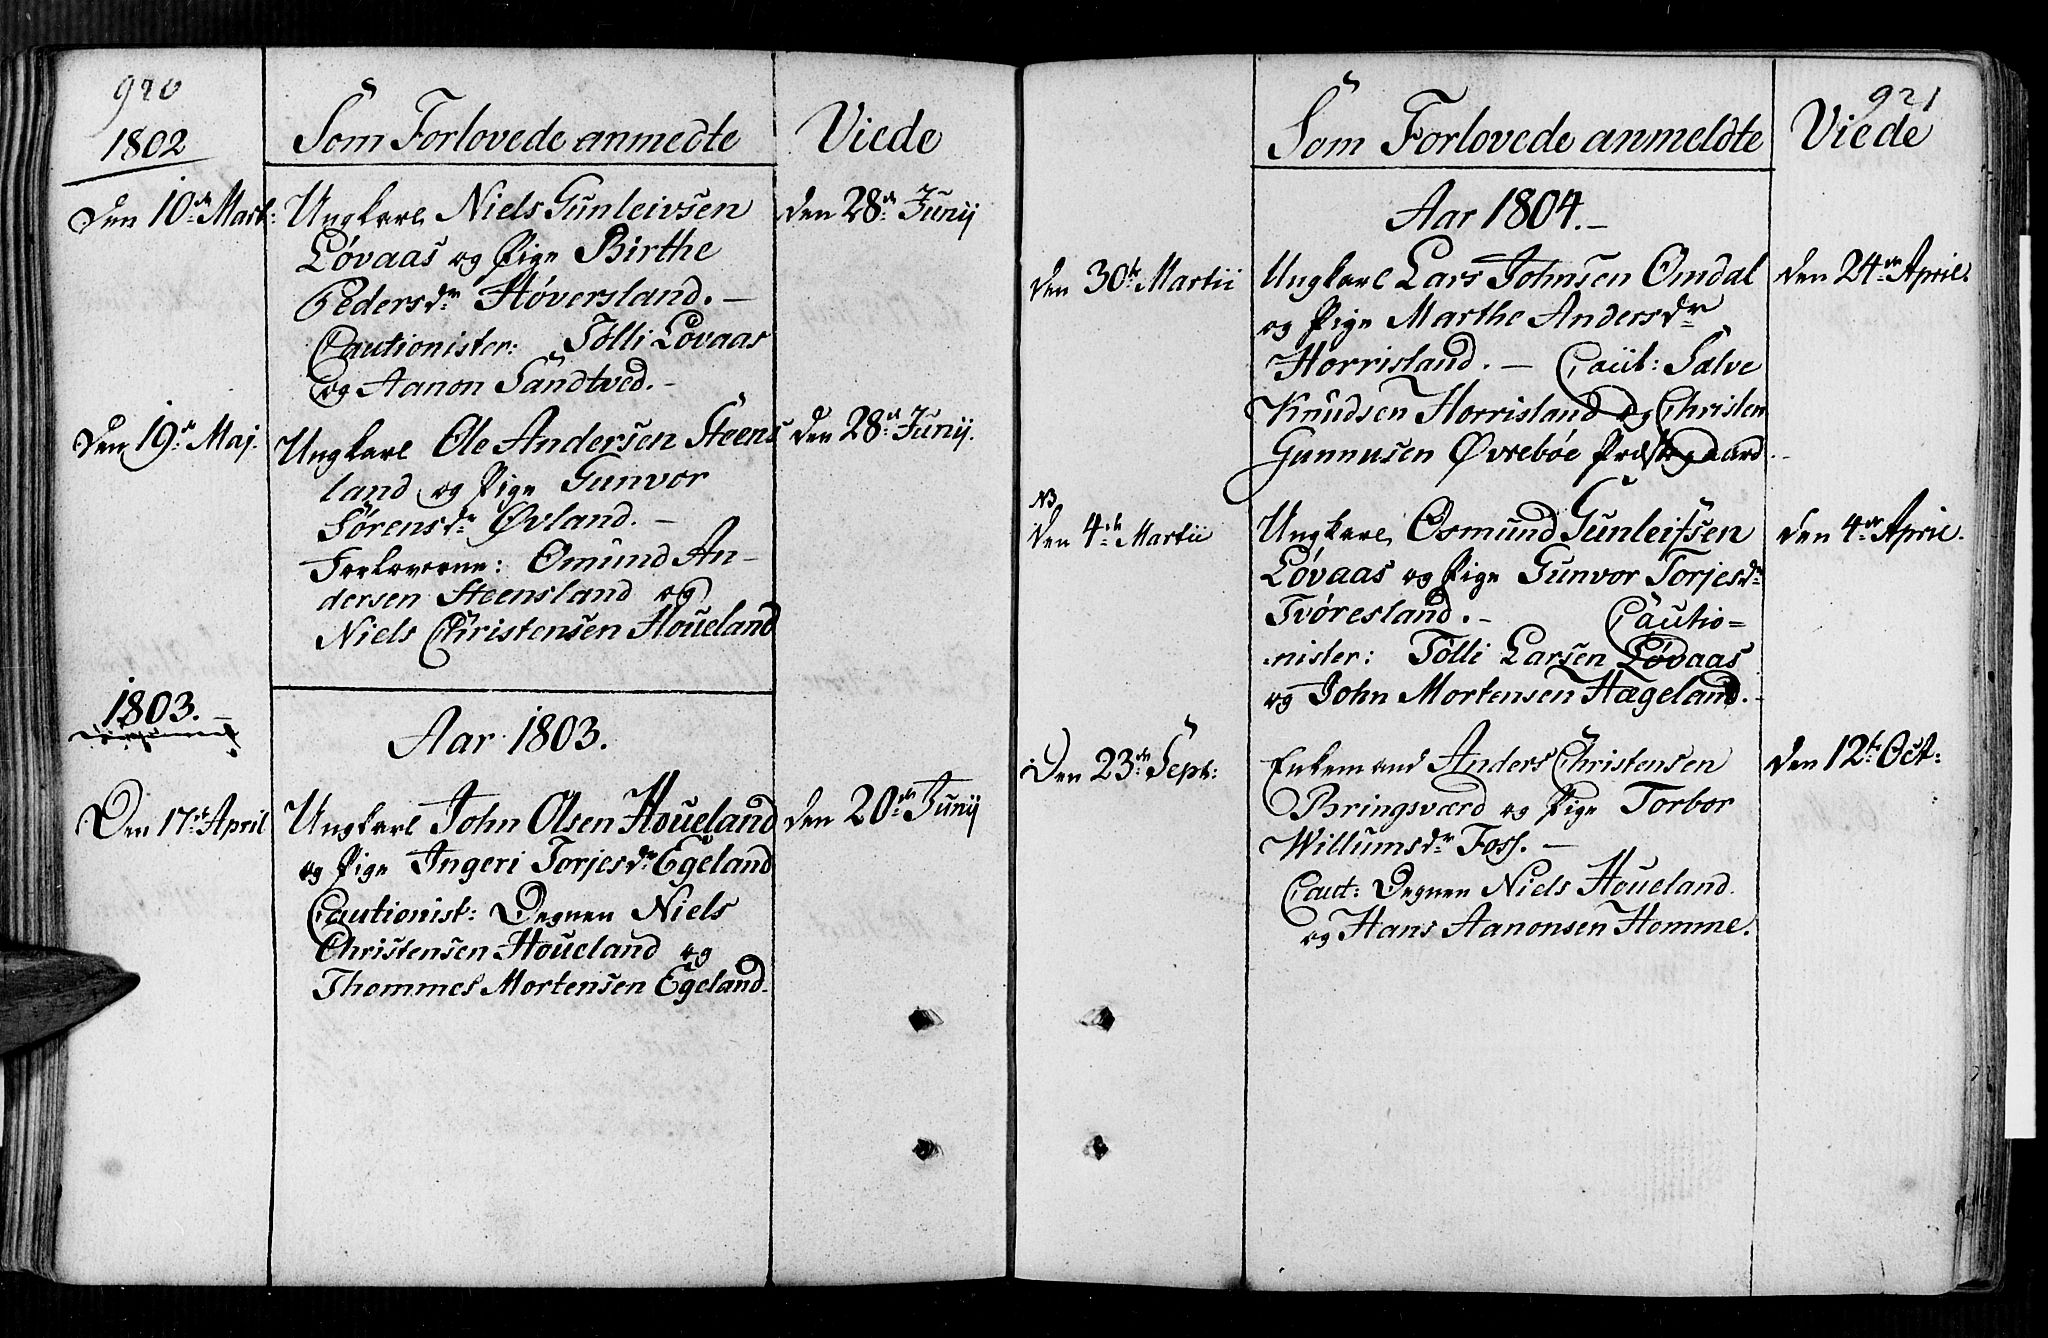 920
1802
Som Forlovede anmedte
Viede
Den 10de Mart:
Ungkarl Niels Gunleivsen
Løvaas og Pige Birthe
Pedersdr Høversland. –
Cautionister: Tölli Lovaas
og Aanon Sandtved. –
den 28de Junij
Den 19de Maj.
Ungkarl Ole Andersen Steens
land og Pige Gunvor
Sørensdr Øvland. –
Forloverne: Omund An-
dersen Steensland og
Niels Christensen Houeland
den 28de Junij.
1803. –
Aar 1803.
Den 17de April
Ungkarl John Olsen Houeland
og Pige Ingeri Torjesdr Egeland
Cautionist: Degnen Niels
Christensen Houeland og
Thommes Mortensen Egeland.
den 20de Junij
921
Som Forlovede anmeldte
Viede
Aar 1804. –
den 30te Martii
Ungkarl Lars Johnsen Omdal
og Pige Marthe Andersdr
Horrisland. – Caut: Salve
Knudsen Horrisland og Christen
Gunnusen Øvrebøe Præstegaard.
den 24de April.
NB
den 4de Martii
Ungkarl Osmund Gunleifsen
Løvaas og Pige Gunvor Torjesdr
Tvóresland. – Cautio=
nister: Tölli Larsen Løvaas
og John Mortensen Hægeland. –
den 4de April.
Den 23de Sept:
Enkemand Anders Christensen
Bringsværd og Pige Torbor
Willumsdr Foss. –
Caut: Degnen Niels Houeland
og Hans Aanonsen Homme.
den 12te Oct: